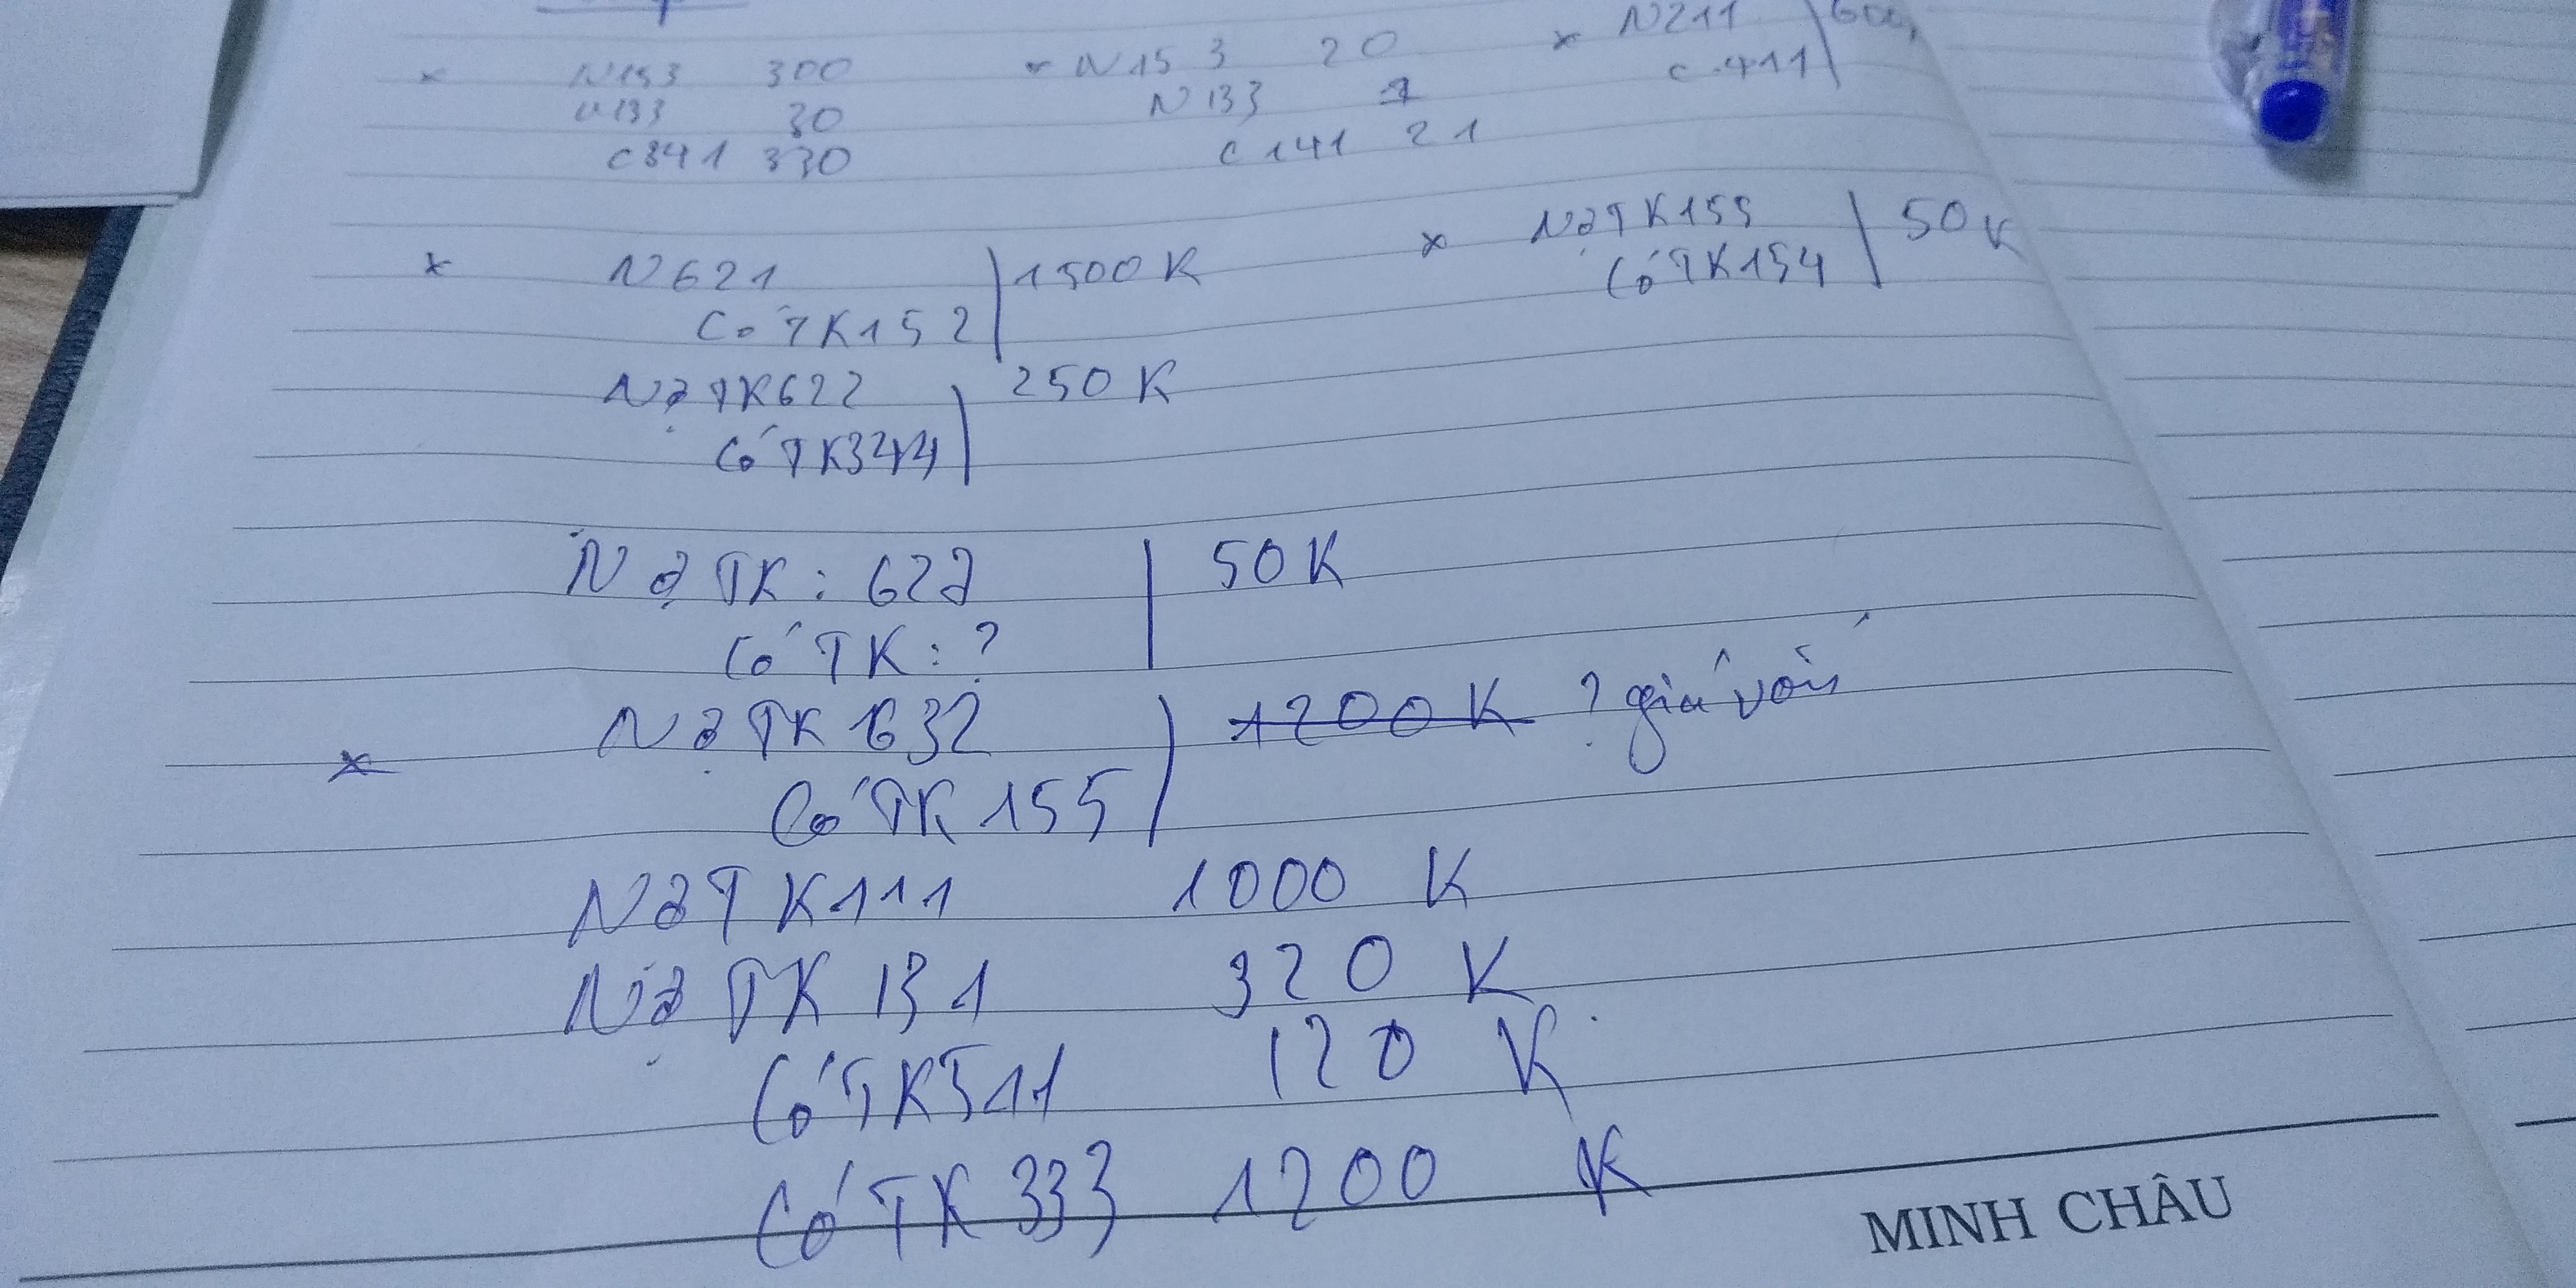 * N153 300
N133 30
C341 330
* N153 20
N133 1
C141 21
* N211
C411
* N621 1500K
Có TK152
Nợ TK622 250K
Có TK344
* Nợ TK155 50K
Có TK154
Nợ TK: 627 50K
Có TK: ?
* Nợ TK 632 1200K ? giá vốn
Có TK 155
Nợ TK111 1000 K
Nợ TK 131 320 K
Có TK511 120 K
Có TK 333 1200 K
MINH CHÂU